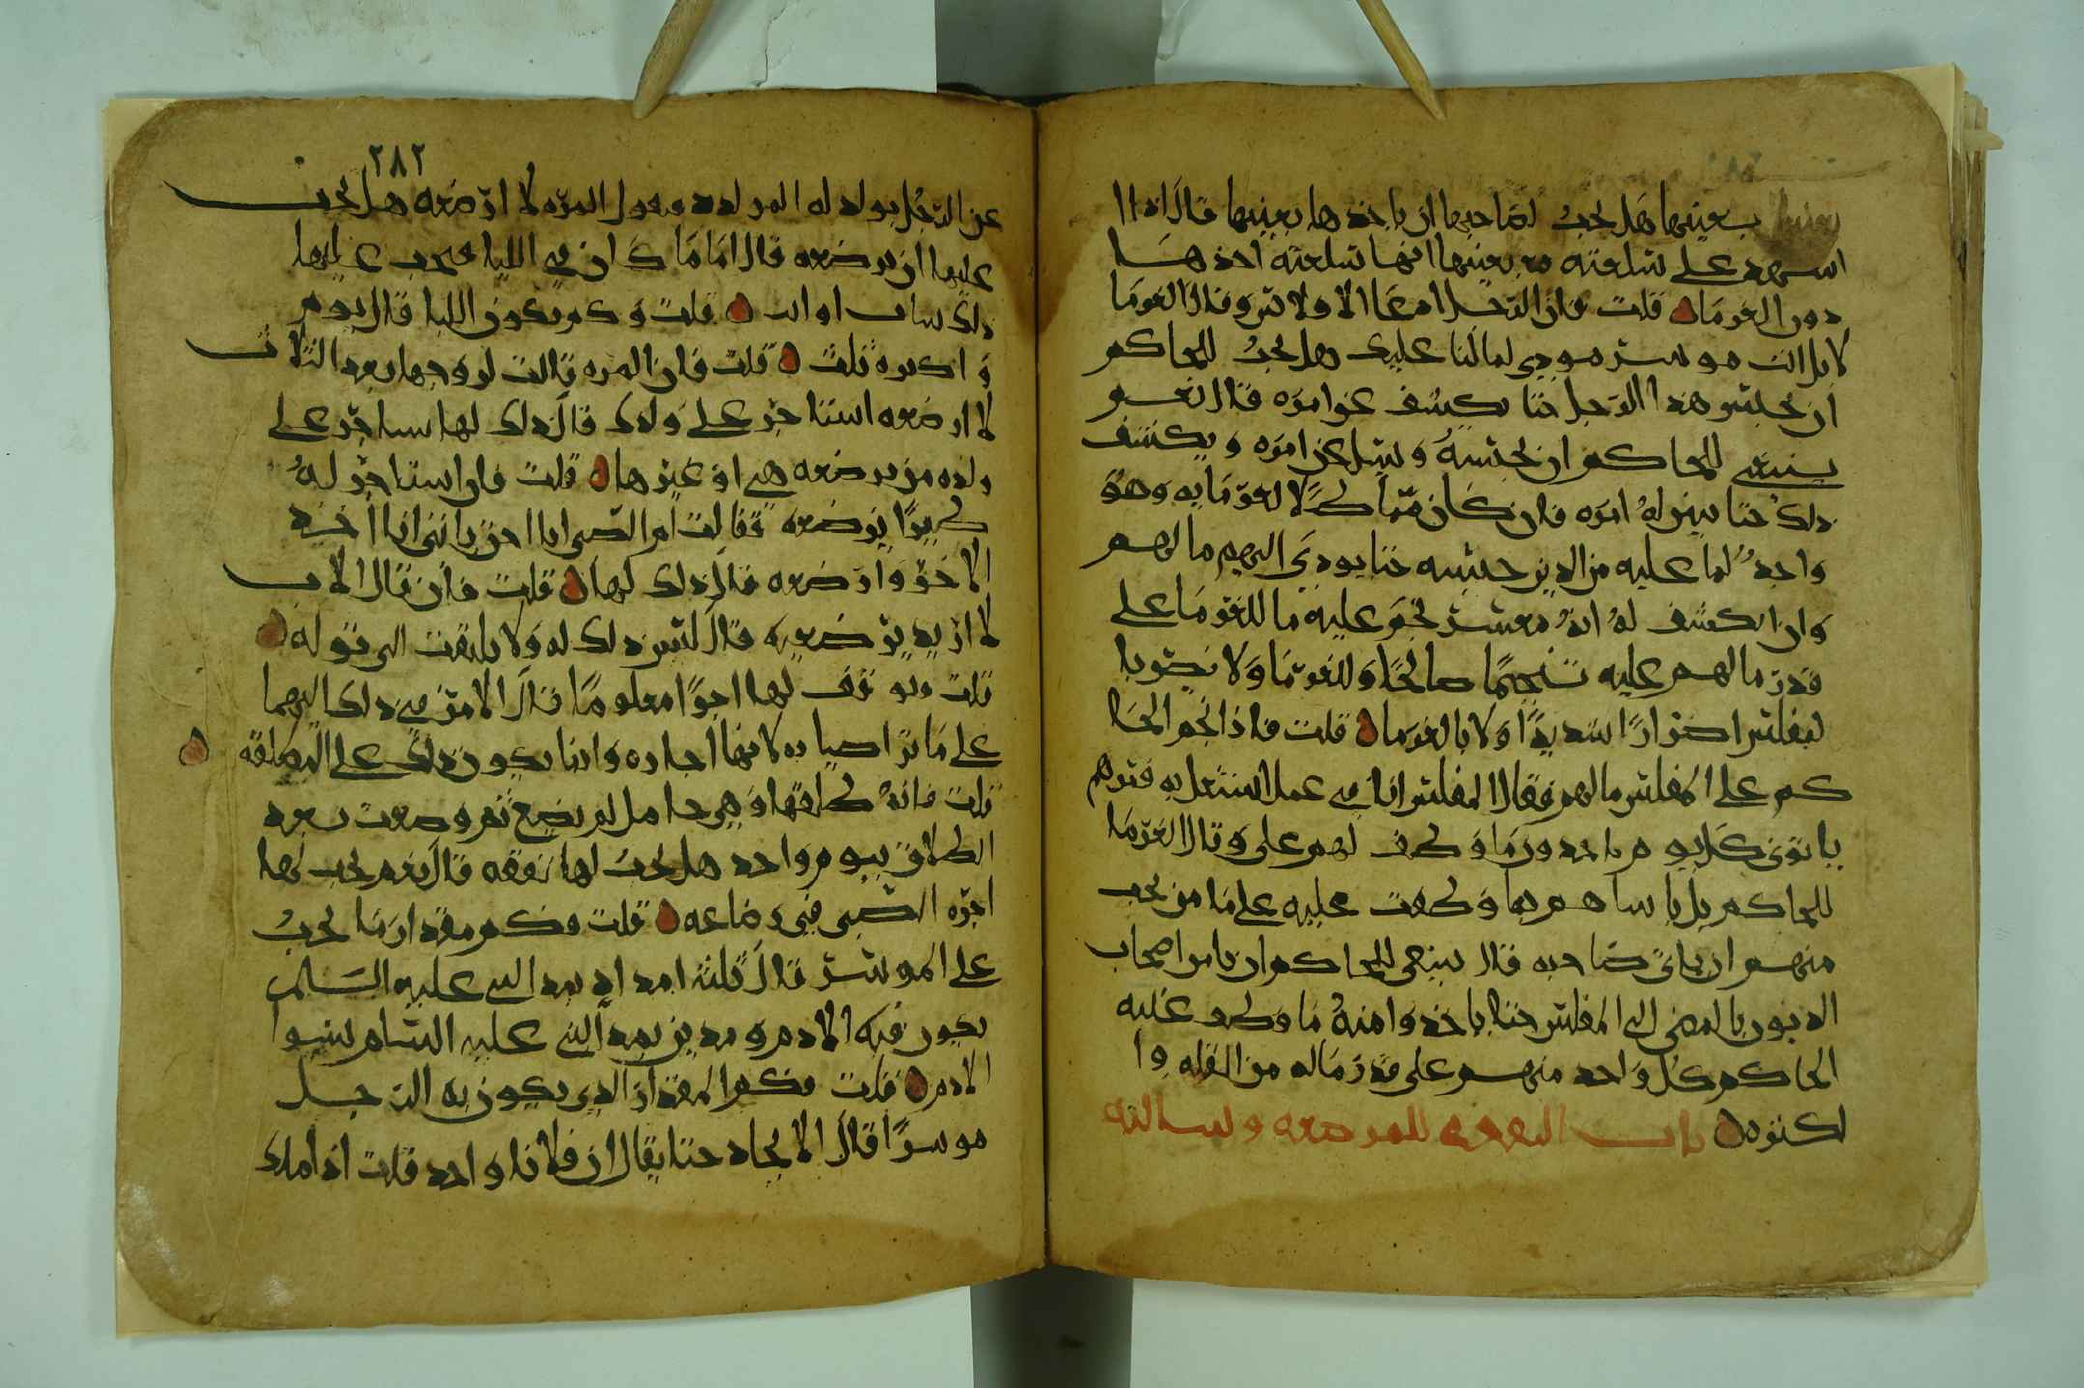 بعينها هل يجب لصاحبها ان ياخذها بعينها قال اذا
اشهد على سلعته بعينها انها سلعته اخذها
دون الغرما قلت فان الرجل ادعا الافلاس وقال الغرما
لا بل انت موسر مودي لما لنا عليك هل يجب للحاكم
ان يحبس هذا الرجل حتا يكشف عن امره قال نعم
ينبغي للحاكم ان يحبسه ويسل عن امره ويكشف
ذلك حتا يبين له امره فان كان لالغرمايه وهو
واجد لما عليه من الدين حبسه حتا يودي اليهم مالهم
وان انكشف له انه معسر عليه ما للغرما على
قدر مالهم عليه صالحا وللغرما ولا
المفلس اضرارا شديدا ولا بالغرما قلت فاذا الحا
كم على المفلس مالهم فقال المفلس انا في عمل اشتغل به فمرهم
ياتوني كل يوم ياخذون ما وظف لهم علي وقال الغرما
للحاكم بل ياتينا هو بما وظفت عليه على من يجب
منهم ان ياتي صاحبه قال ينبغي للحاكم ان يامر اصحاب
الديون بالمضي الى المفلس حتا ياخذوا منه ما وظف عليه
الحاكم كل واحد منهم على قدر ماله من القله وا
لكثره باب النفقه للمرضعه وسالته
٢٨٢
عن الرجل يولد له المولود وتقول المره لا ارضعه هل يجب
عليها ان ترضعه قال اما ما كان في اللبا فيجب عليها
ذلك شات او ابت قلت وكم يكون اللبا قال يوم
واكثره ثلث قلت فان المره قالت لزوجها بعد الثلاث
لا ارضعه استاجر على ولدك قال ذلك لها يستاجر على
ولده من يرضعه هي او غيرها قلت فان استاجر له
ظيرا ترضعه فقالت ام الصبي انا احق بابني انا اخذ
الاجر وارضعه قال ذلك لها قلت فان قال الاب
لا اريد ترضعيه قال ليس ذلك له ولا يلتفت الى قوله
قلت ولو لها اجرا معلوما قال الامر في ذلك اليهما
على ما تراضيا به لانها اجاره وانما يكون ذلك على المطلقه
قلت فانه طلقها وهي حامل لم تضع ثم وضعت بعد
الطلاق بيوم واحد هل يجب لها نفقه قال نعم يجب لها
اجره الصبي في رضاعه قلت وكم مقدار ما يجب
على الموسر قال ثلثه امداد بمد النبي عليه السلم
يكون فيه الادم ومدين بمد النبي عليه السلم
الادم قلت فكم المقدار الذي يكون به الرجل
موسرا قال الايجاد حتا يقال ان فلانا واجد قلت اذا ملك